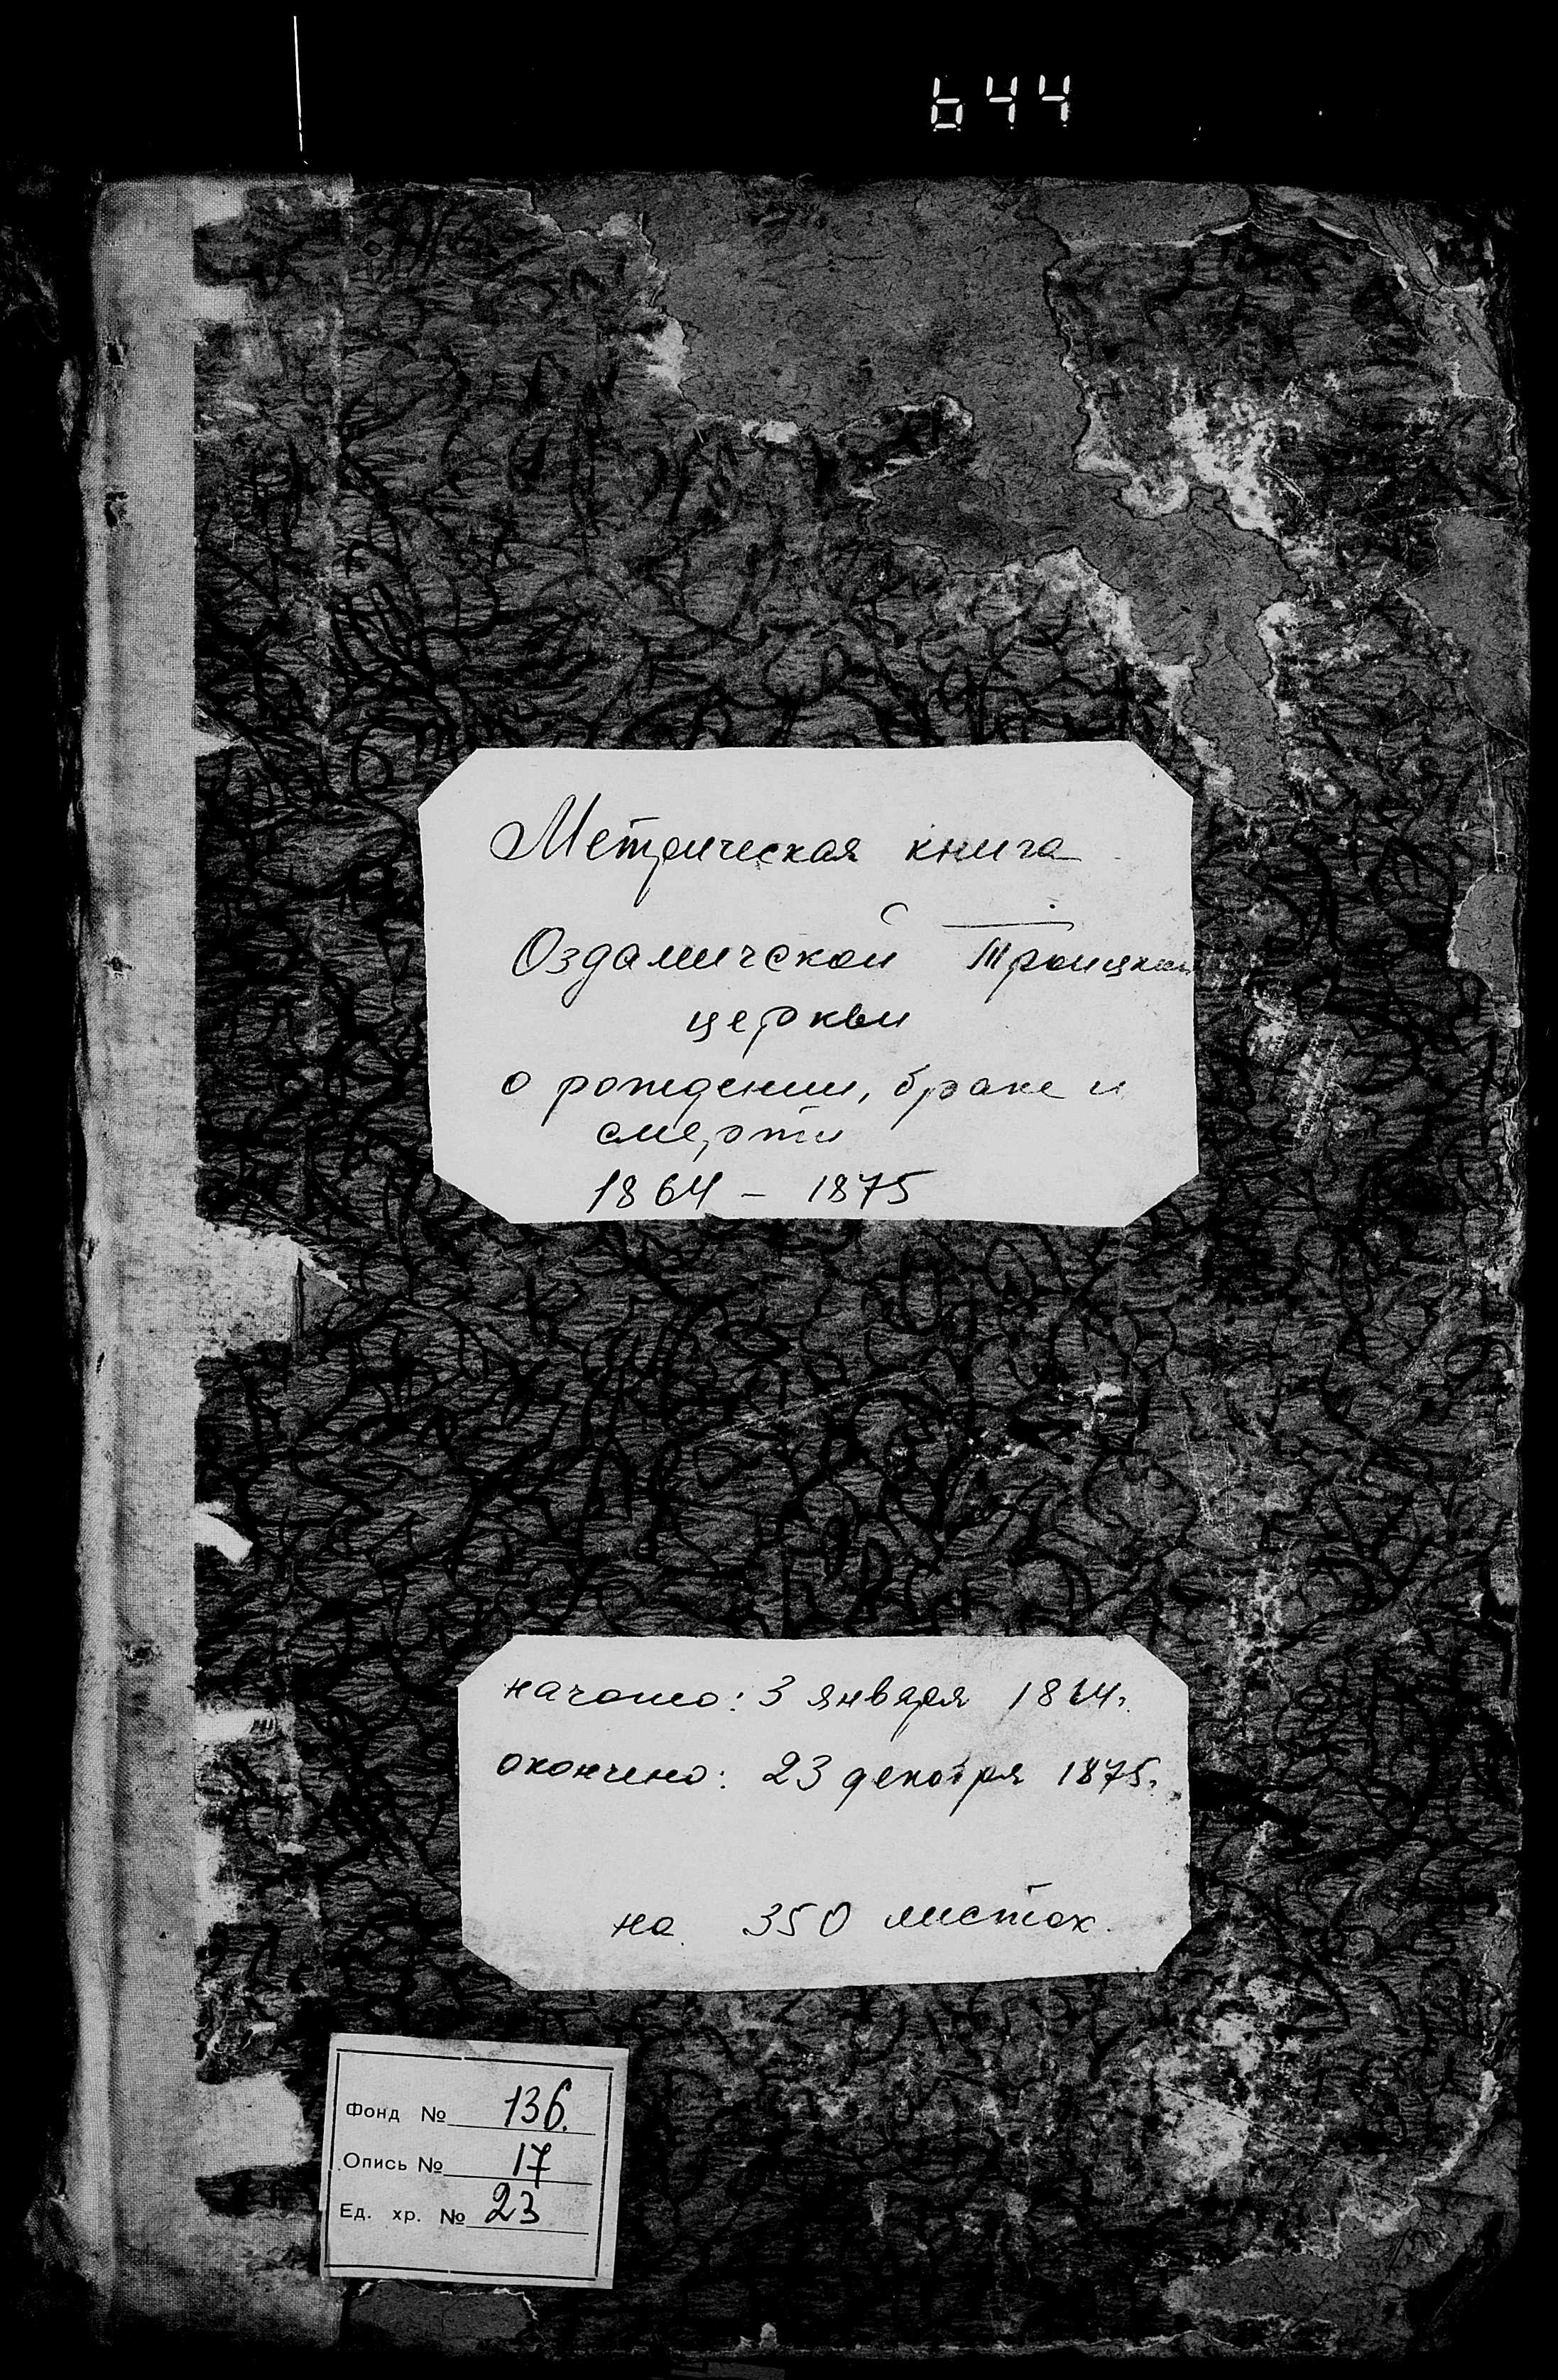 644
Метрическая книга
Оздамичской Троицкой
церкви
о рождении, браке и
смерти
1864 – 1875
начато: 3 января 1864г.
окончено: 23 декабря 1875г.
на 350 листах.
Фонд № 136.
Опись № 17
Ед. хр. № 23